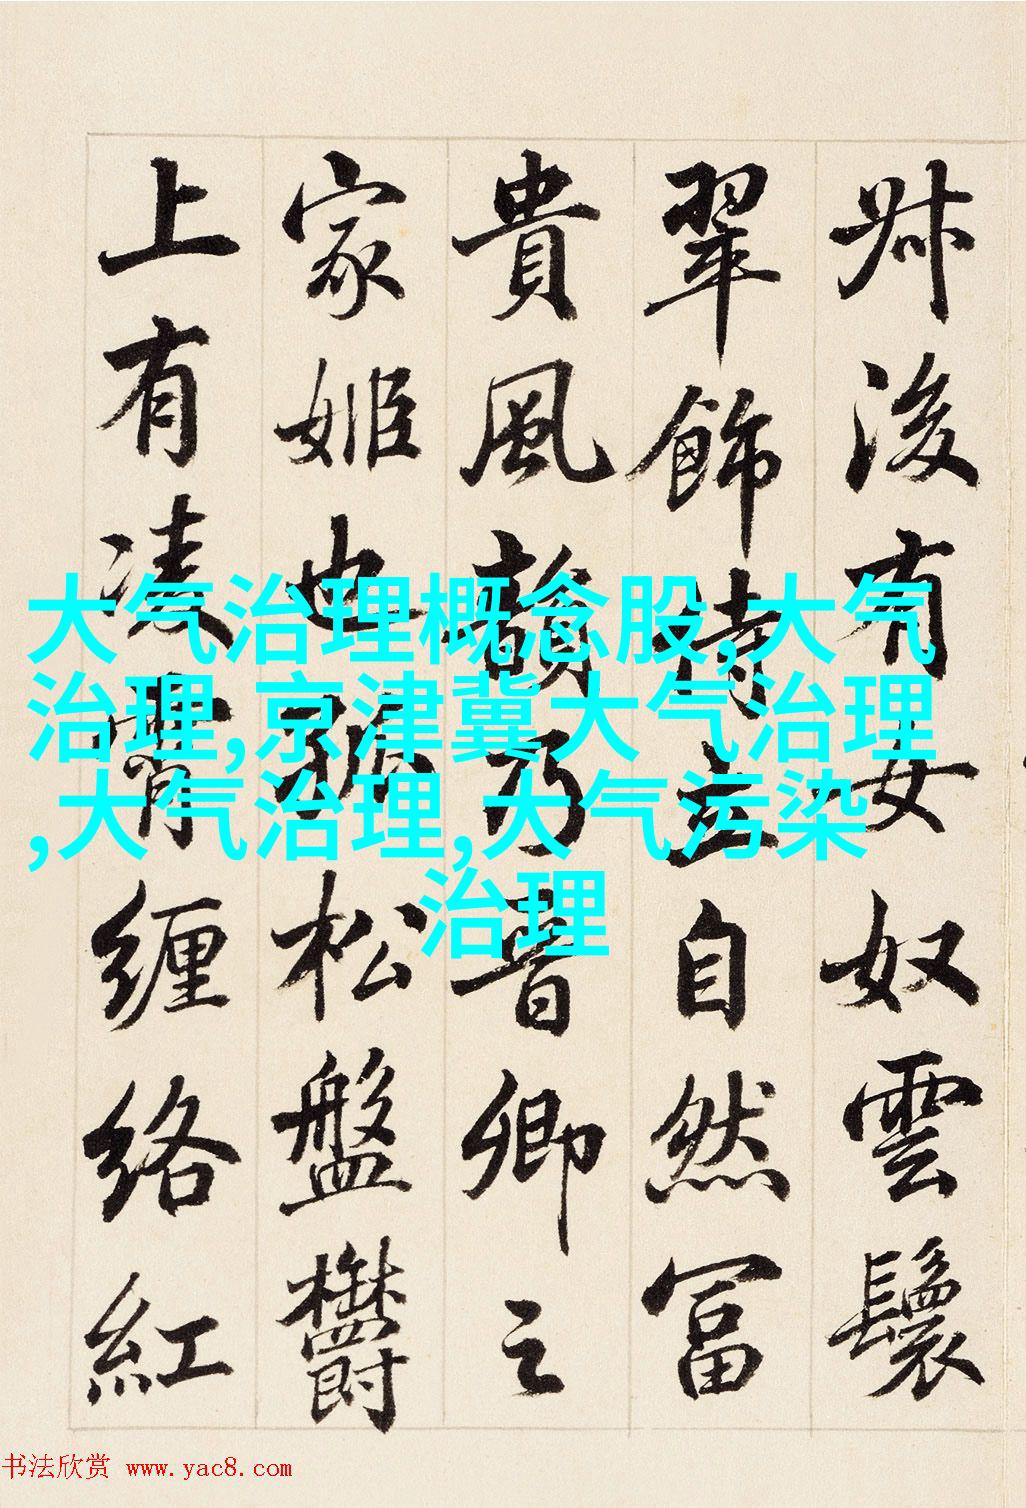 叔後有女奴雲鬟
翠飾侍立自然富
貴風韻乃晉卿之
家姬也孤松盤鬱
上有凌霄纏絡紅
大气治理概念股,大气
治理,京津冀大气治理
,大气治理,大气污染
治理
书法欣赏 www.yac8.com